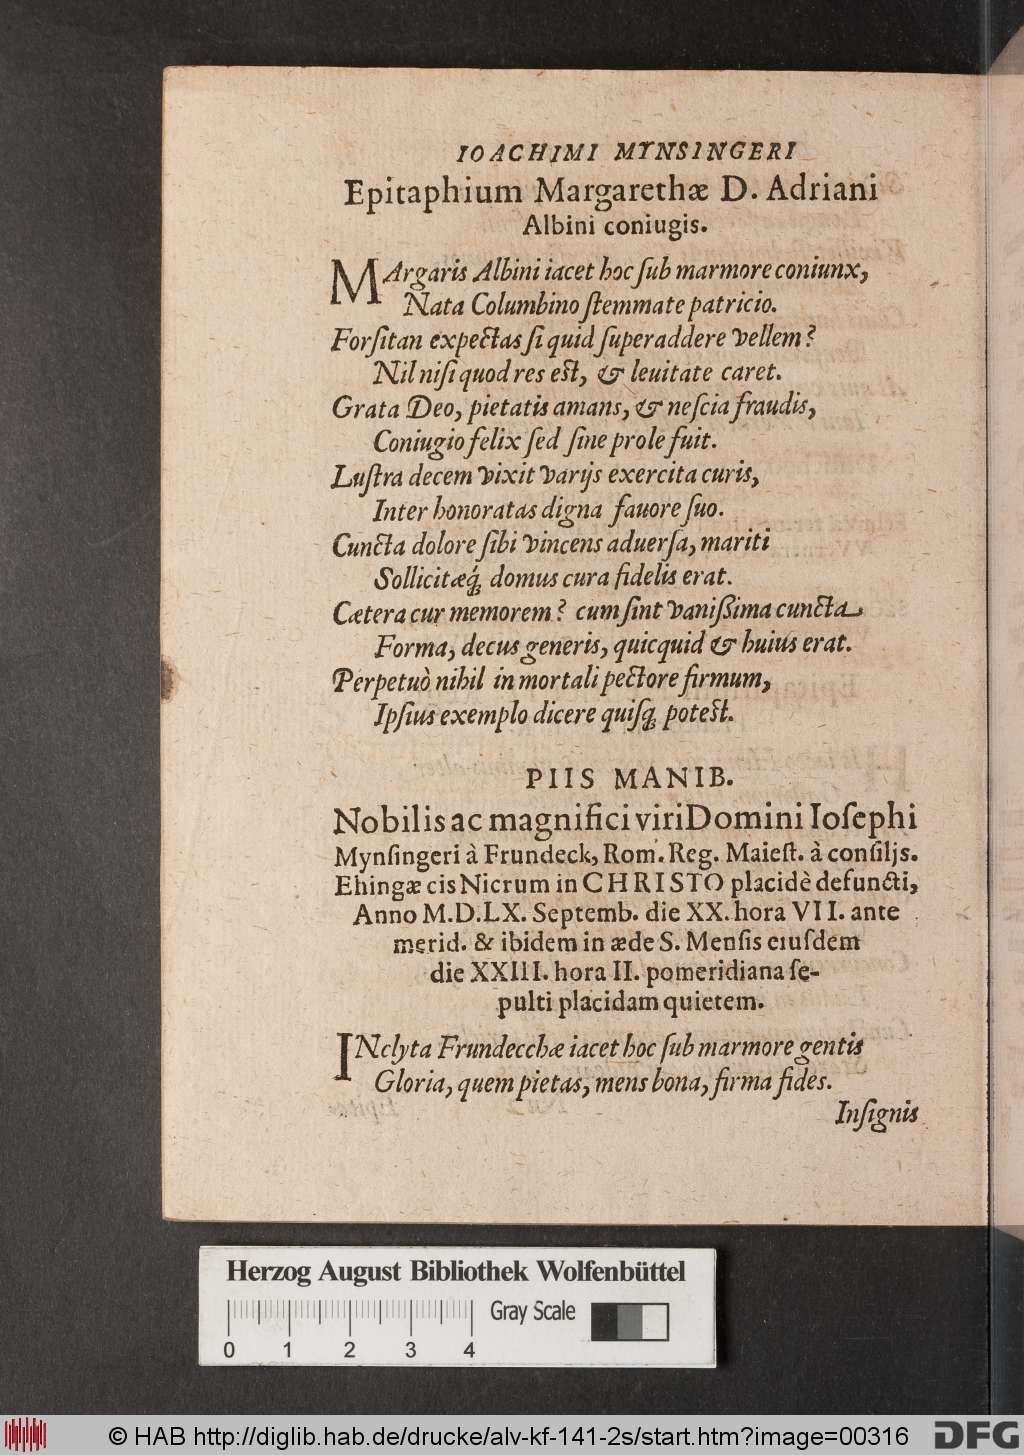 IOACHIMI MYNSINGERI
Epitaphium Margarethæ D. Adriani
Albini coniugis.
MArgaris Albini iacet hoc ſub marmore coniunx,
Nata Columbino ſtemmate patricio.
Forſitan expectas ſi quid ſuperaddere vellem?
Nil niſi quod res eſt, & leuitate caret.
Grata Deo, pietatis amans, & neſcia fraudis,
Coniugio felix ſed ſine prole fuit.
Luſtra decem vixit varijs exercita curis,
Inter honoratas digna fauore ſuo.
Cuncta dolore ſibi vincens aduerſa, mariti
Sollicitæq́; domus cura fidelis erat.
Cætera cur memorem? cum ſint vaniſsima cuncta
Forma, decus generis, quicquid & huius erat.
Perpetuò nihil in mortali pectore firmum,
Ipſius exemplo dicere quiſq; poteſt.
PIIS MANIB.
Nobilis ac magnifici viri Domini Ioſephi
Mynſingeri à Frundeck, Rom. Reg. Maieſt. à conſiljs.
Ehingæ cis Nicrum in CHRISTO placidè defuncti,
Anno M.D.LX. Septemb. die XX. hora VII. ante
merid. & ibidem in æde S. Menſis eiuſdem
die XXIII. hora II. pomeridiana ſe-
pulti placidam quietem.
INclyta Frundecchæ iacet hoc ſub marmore gentis
Gloria, quem pietas, mens bona, firma fides.
Inſignis
Herzog August Bibliothek Wolfenbüttel
Gray Scale
0 1 2 3 4
© HAB http://diglib.hab.de/drucke/alv-kf-141-2s/start.htm?image=00316
DFG